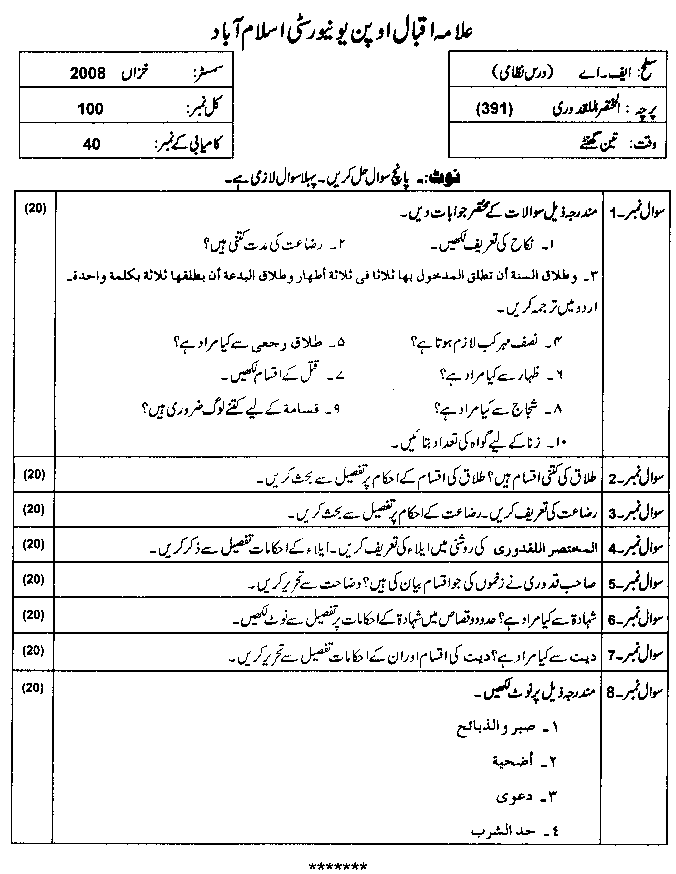 علامہ اقبال اوپن یونیورسٹی اسلام آباد
سطح: ایف۔اے (درس نظامی)
سمسٹر: خزاں 2008
پرچہ: المختصر للقدوری (391)
کل نمبر: 100
وقت: تین گھنٹے
کامیابی کے نمبر: 40
نوٹ:۔ پانچ سوال حل کریں۔ پہلا سوال لازمی ہے۔
سوال نمبر۔1 مندرجہ ذیل سوالات کے مختصر جوابات دیں۔ (20)
۱۔ نکاح کی تعریف لکھیں۔ ۲۔ رضاعت کی مدت کتنی ہیں؟
۳۔ وطلاق السنة أن تطلق المدخول بها ثلاثا فی ثلاثة أطهار وطلاق البدعة أن يطلقها ثلاثة بكلمة واحدة۔
اردو میں ترجمہ کریں۔
۴۔ نصف مہر کب لازم ہوتا ہے؟ ۵۔ طلاق رجعی سے کیا مراد ہے؟
۶۔ ظہار سے کیا مراد ہے؟ ۷۔ قتل کے اقسام لکھیں۔
۸۔ شجاج سے کیا مراد ہے؟ ۹۔ قسامة کے لیے کتنے لوگ ضروری ہیں؟
۱۰۔ زنا کے لیے گواہ کی تعداد بتائیں۔
سوال نمبر۔2 طلاق کی کتنی اقسام ہیں؟ طلاق کی اقسام کے احکام پر تفصیل سے بحث کریں۔ (20)
سوال نمبر۔3 رضاعت کی تعریف کریں۔ رضاعت کے احکام پر تفصیل سے بحث کریں۔ (20)
سوال نمبر۔4 المختصر اللقدوری کی روشنی میں ایلاء کی تعریف کریں۔ ایلاء کے احکامات تفصیل سے ذکر کریں۔ (20)
سوال نمبر۔5 صاحب قدوری نے زخموں کی جو اقسام بیان کی ہیں؟ وضاحت سے تحریر کریں۔ (20)
سوال نمبر۔6 شہادة سے کیا مراد ہے؟ حدود و قصاص میں شہادة کے احکامات پر تفصیل سے نوٹ لکھیں۔ (20)
سوال نمبر۔7 دیت سے کیا مراد ہے؟ دیت کی اقسام اور ان کے احکامات تفصیل سے تحریر کریں۔ (20)
سوال نمبر۔8 مندرجہ ذیل پر نوٹ لکھیں۔ (20)
۱۔ صبر والذبائح
۲۔ أضحية
۳۔ دعوی
٤۔ حد الشرب
*******